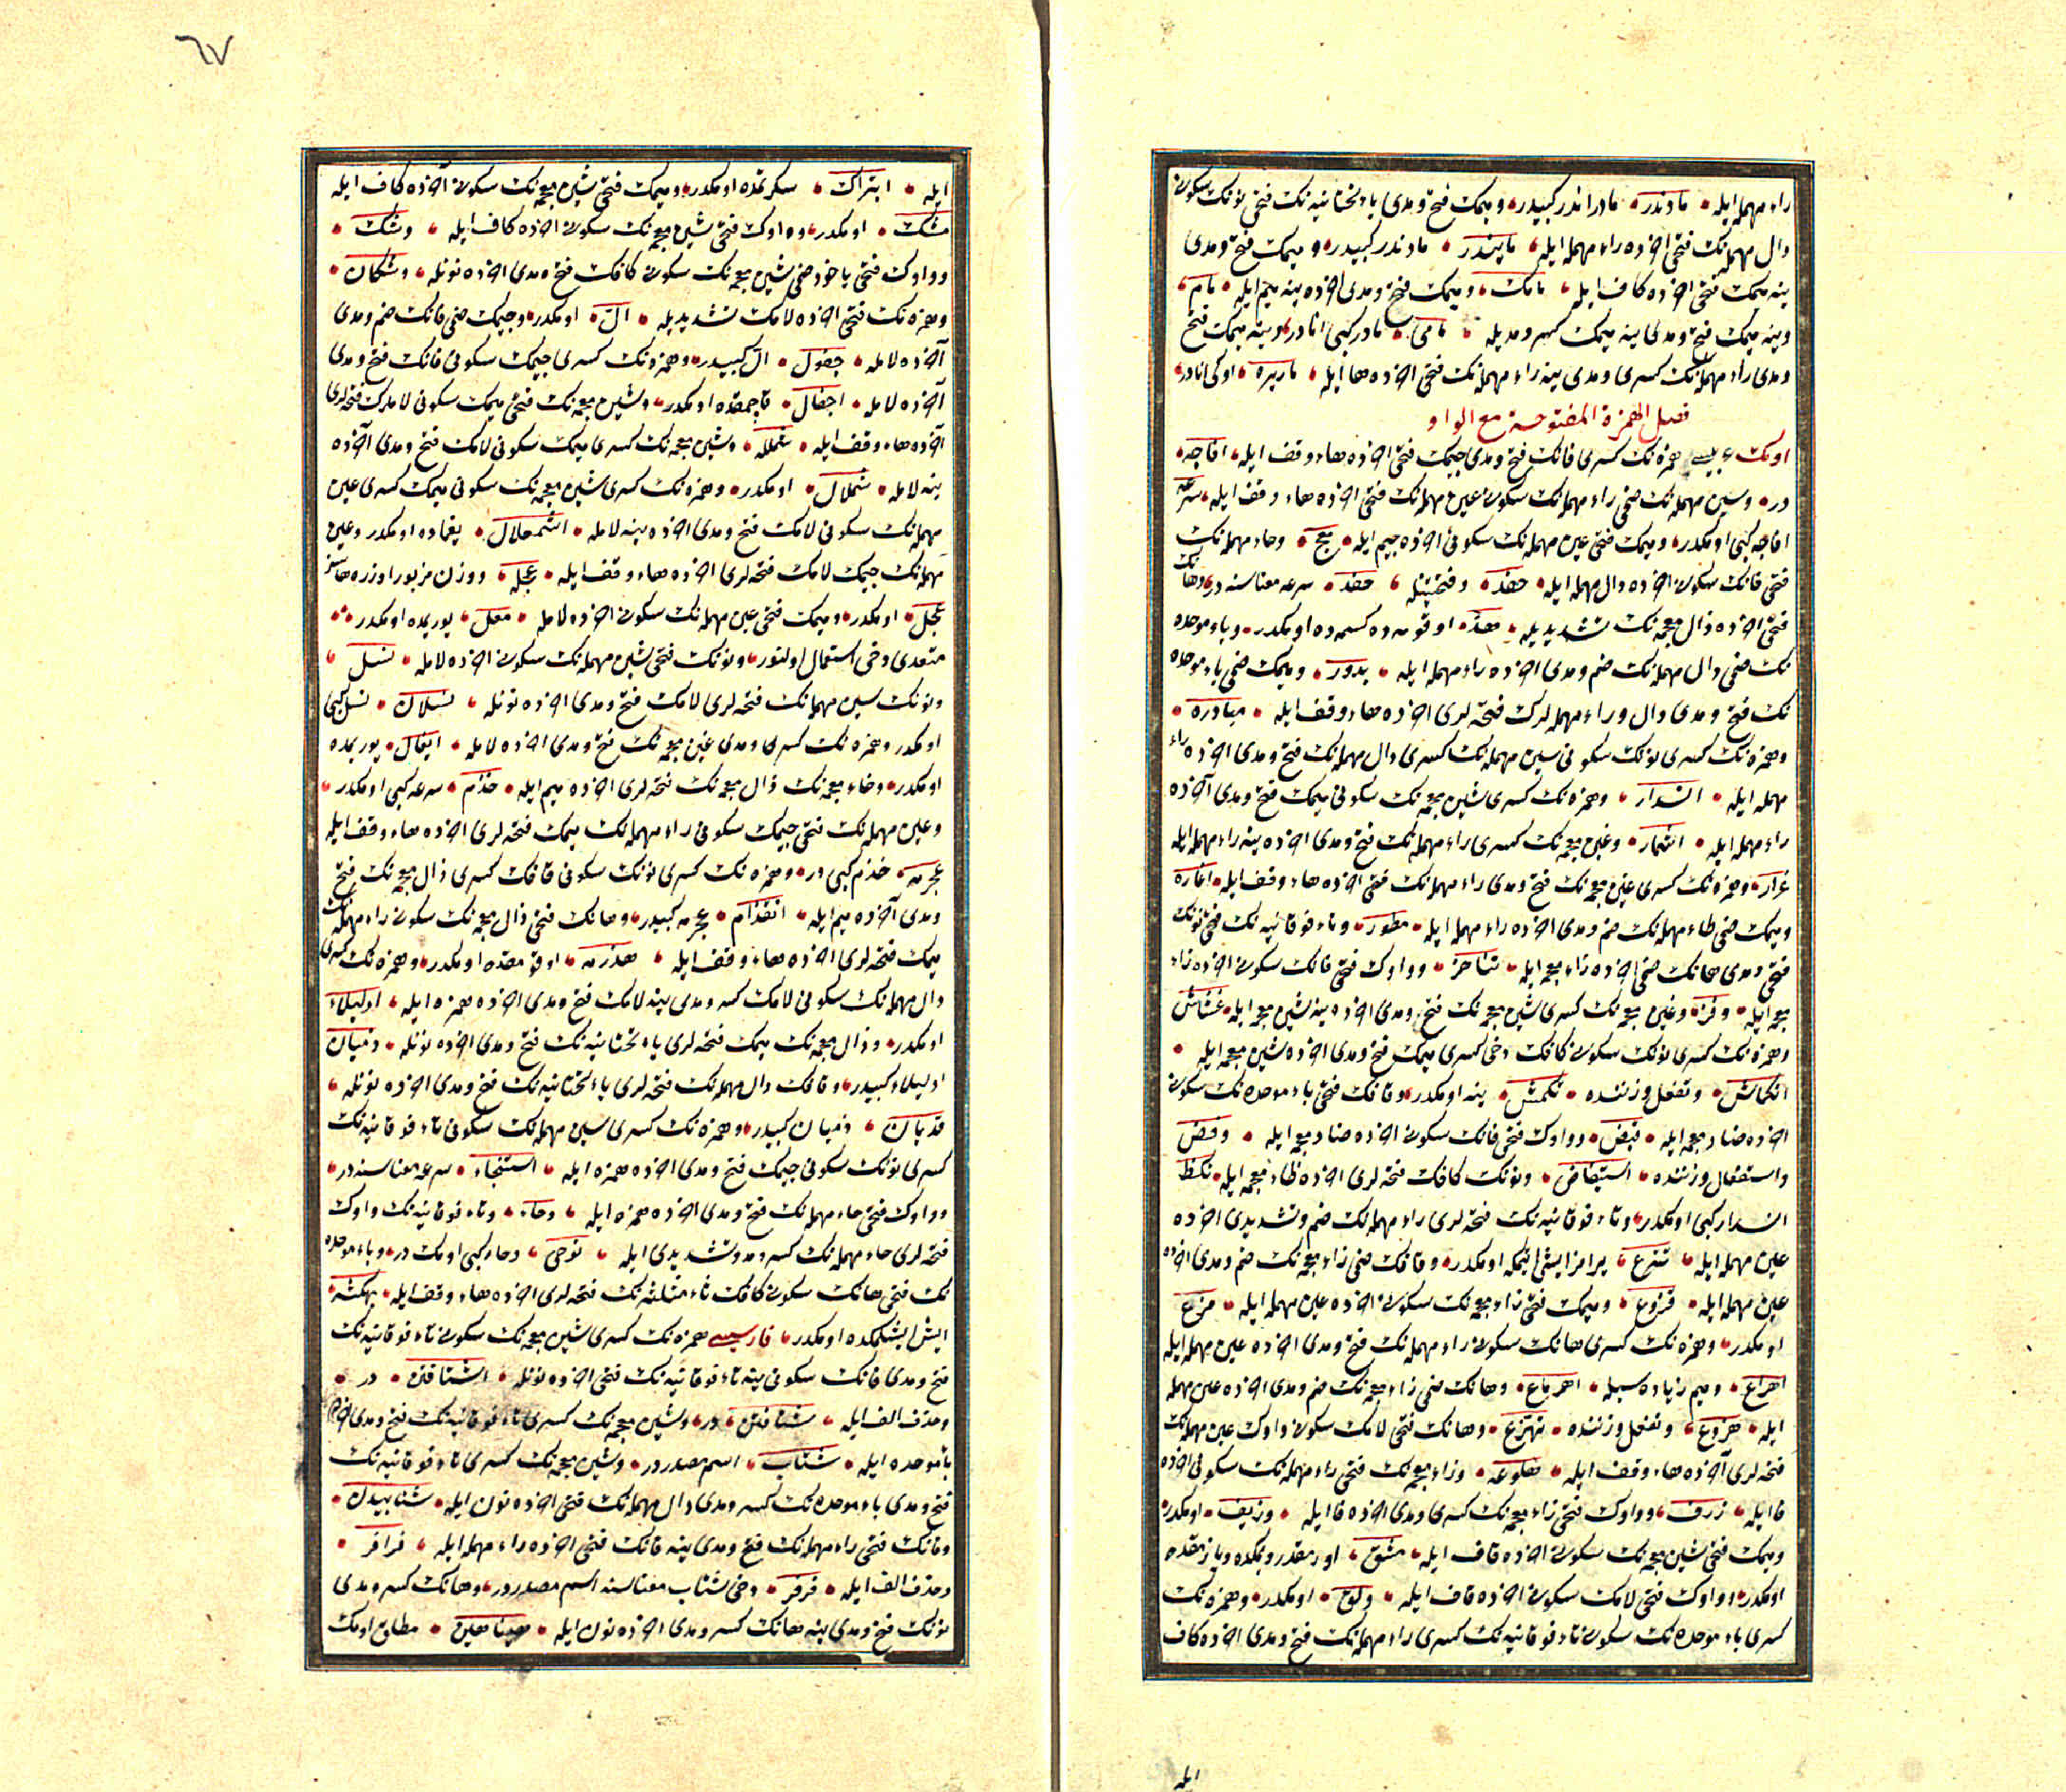 راء مهمله ایله مادندر مادراندر کبیدر و میمك فتح و مدی یاء تحتانیه نك فتحی نونك سکونی
دال مهمله نك فتحی اخرده راء مهمله ایله مایندر مادندر کبیدر و میمك فتح و مدی
ینه میمك فتحی اخرده کاف ایله مامك و میمك فتح و مدی اخرده ینه میم ایله مام
وینه میمك فتح و مدی ینه میمك کسر و مدیله مامی مادر کبی انادر وینه میمك فتح
و مدی راء مهمله نك کسری و مدی ینه راء مهمله نك فتحی اخرده ها ایله ماریره اوکی انادر
فصل الهمزة المفتوحة مع الواو
اومك عربیسی همزه نك کسری فانك فتح و مدی جیمك فتحی اخرده هاء وقف ایله افاجه
در وسین مهمله نك ضمی راء مهمله نك سکونی عین مهمله نك فتحی اخرده هاء وقف ایله سرعه
افاجه کبی اومکدر و میمك فتحی عین مهمله نك سکونی اخرده جیم ایله معج وحاء مهمله نك
فتحی فانك سکونی اخرده دال مهمله ایله حفد وفتحتینله حفد سرعه معناسنه در وهانك
فتحی اخرده ذال معجمه نك تشدیدیله هذ اوقومه ده کسمه ده اومکدر وباء موحده
نك ضمی دال مهمله نك ضم و مدی اخرده راء مهمله ایله بدور و میمك ضمی باء موحده
نك فتح و مدی دال و راء مهمله لرك فتحه لری اخرده هاء وقف ایله مبادره
وهمزه نك کسری نونك سکونی سین مهمله نك کسری دال مهمله نك فتح و مدی اخرده راء
مهمله ایله انسدار وهمزه نك کسری شین معجمه نك سکونی میمك فتح و مدی آخرده
راء مهمله ایله اشمار وغین معجمه نك کسری راء مهمله نك فتح و مدی اخرده ینه راء مهمله ایله
غرار وهمزه نك کسری غین معجمه نك فتح و مدی راء مهمله نك فتحی اخرده هاء وقف ایله اغاره
و میمك ضمی طاء مهمله نك ضم و مدی اخرده راء مهمله ایله مطور وتاء فوقانیه نك فتحی نونك
فتحی و مدی هانك ضمی اخرده زاء معجمه ایله تناهز وواوك فتحی فانك سکونی اخرده زاء
معجمه ایله وفز وغین معجمه نك کسری شین معجمه نك فتح و مدی اخرده ینه شین معجمه ایله غشاش
وهمزه نك کسری نونك سکونی کافك دخی کسری میمك فتح و مدی اخرده شین معجمه ایله
انکماش وتفعل وزننده تکمش ینه اومکدر وقافك فتحی باء موحده نك سکونی
اخرده ضاد معجمه ایله قبض وواوك فتحی فانك سکونی اخرده ضاد معجمه ایله وفض
واستفعال وزننده استیفاض ونونك کافك فتحه لری اخرده ظاء معجمه ایله نکظ
انسدار کبی اومکدر وتاء فوقانیه نك فتحه لری راء مهمله نك ضم وتشدیدی اخرده
عین مهمله ایله تترع یرامز ایش ایتمکه اومکدر وقافك ضمی زاء معجمه نك ضم و مدی اخرده
عین مهمله ایله قزوع و میمك فتحی زاء معجمه نك سکونی اخرده عین مهمله ایله مزع
اومکدر وهمزه نك کسری هانك سکونی راء مهمله نك فتح و مدی اخرده عین مهمله ایله
اهراع و میم زیاده سیله اهرماع وهانك ضمی زاء معجمه نك ضم و مدی اخرده عین مهمله
ایله هزوع وتفعل وزننده تهزع وهانك فتحی لامك سکونی واوك عین مهمله نك
فتحه لری آخرده هاء وقف ایله هلوعه وزاء معجمه نك فتحی راء مهمله نك سکونی اخرده
فا ایله زرف وواوك فتحی زاء معجمه نك کسری و مدی اخرده فا ایله وزیف اومکدر
و میمك فتحی شین معجمه نك سکونی اخرده قاف ایله مشق اورمقدر و یمکده و یازمقده
اومکدر وواوك فتحی لامك سکونی اخرده قاف ایله ولق اومکدر وهمزه نك
کسری باء موحده نك سکونی تاء فوقانیه نك کسری راء مهمله نك فتح و مدی اخرده کاف
ایله
٦٧
ایله ابتراك سکرتمده اومکدر و میمك فتحی شین معجمه نك سکونی آخرده کاف ایله
مشك اومکدر وواوك فتحی شین معجمه نك سکونی اخرده کاف ایله وشك
وواوك فتحی یاخود ضمی شین معجمه نك سکونی کافك فتح و مدی اخرده نونله وشکان
وهمزه نك فتحی اخرده لامك تشدیدیله ال اومکدر وجیمك ضمی فانك ضم و مدی
آخرده لامله جفول ال کبیدر وهمزه نك کسری جیمك سکونی فانك فتح و مدی
آخرده لامله اجفال قاجمقده اومکدر وشین معجمه نك فتحی میمك سکونی لاملرك فتحه لری
آخرده هاء وقف ایله شمللە وشین معجمه نك کسری میمك سکونی لامك فتح و مدی آخرده
ینه لامله شملال اومکدر وهمزه نك کسری شین معجمه نك سکونی میمك کسری عین
مهمله نك سکونی لامك فتح و مدی اخرده ینه لامله اشمعلال یغماده اومکدر وعین
مهمله نك جیمك لامك فتحه لری اخرده هاء وقف ایله عجله ووزن مزبور اوزره هاسز
عجل اومکدر و میمك فتحی عین مهمله نك سکونی اخرده لامله معل یوریمده اومکدر
متعدی دخی استعمال اولنور ونونك فتحی سین مهمله نك سکونی اخرده لامله نسل
ونونك سین مهمله نك فتحه لری لامك فتح و مدی اخرده نونله نسلان نسل کبی
اومکدر وهمزه نك کسری و مدی غین معجمه نك فتح و مدی اخرده لامله ایغال یوریمده
اومکدر وخاء معجمه نك ذال معجمه نك فتحه لری اخرده میم ایله خذم سرعه کبی اومکدر
وعین مهمله نك فتحی جیمك سکونی راء مهمله نك میمك فتحه لری اخرده هاء وقف ایله
عجرمه خذم کبی در وهمزه نك کسری نونك سکونی قافك کسری ذال معجمه نك فتح
و مدی آخرده میم ایله انقذام عجرمه کبیدر وهانك فتحی ذال معجمه نك سکونی راء مهمله نك
میمك فتحه لری اخرده هاء وقف ایله هذرمه اوقومقده اومکدر وهمزه نك کسری
دال مهمله نك سکونی لامك کسر و مدی ینه لامك فتح و مدی اخرده همزه ایله ادلیلاء
اومکدر وذال معجمه نك میمك فتحه لری یاء تحتانیه نك فتح و مدی اخرده نونله ذمیان
ادلیلاء کبیدر وقافك دال مهمله نك فتحه لری یاء تحتانیه نك فتح و مدی اخرده نونله
قدیان ذمیان کبیدر وهمزه نك کسری سین مهمله نك سکونی تاء فوقانیه نك
کسری نونك سکونی جیمك فتح و مدی اخرده همزه ایله استنجاء سرعه معناسنه در
وواوك فتحی حاء مهمله نك فتح و مدی اخرده همزه ایله وحاء وتاء فوقانیه نك واوك
فتحه لری حاء مهمله نك کسر و مد وتشدیدی ایله توحی وحاء کبی اومك در وباء موحده
نك فتحی هانك سکونی کافك ثاء مثلثه نك فتحه لری اخرده هاء وقف ایله بهکثه
ایش ایشلمکده اومکدر فارسیسی همزه نك کسری شین معجمه نك سکونی تاء فوقانیه نك
فتح و مدی فانك سکونی ینه تاء فوقانیه نك فتحی اخرده نونله اشتافتن در
وحذف الف ایله شتافتن در وشین معجمه نك کسری تاء فوقانیه نك فتح و مدی اخرده
باء موحده ایله شتاب اسم مصدردر وشین معجمه نك کسری تاء فوقانیه نك
فتح و مدی باء موحده نك کسر و مدی دال مهمله نك فتحی اخرده نون ایله شتابیدن
وفانك فتحی راء مهمله نك فتح و مدی ینه فانك فتحی اخرده راء مهمله ایله فرافر
وحذف الف ایله فرفر دخی شتاب معناسنه اسم مصدردر وهانك کسر و مدی
نونك فتح و مدی ینه هانك کسر و مدی اخرده نون ایله هیناهین مطلق اومك